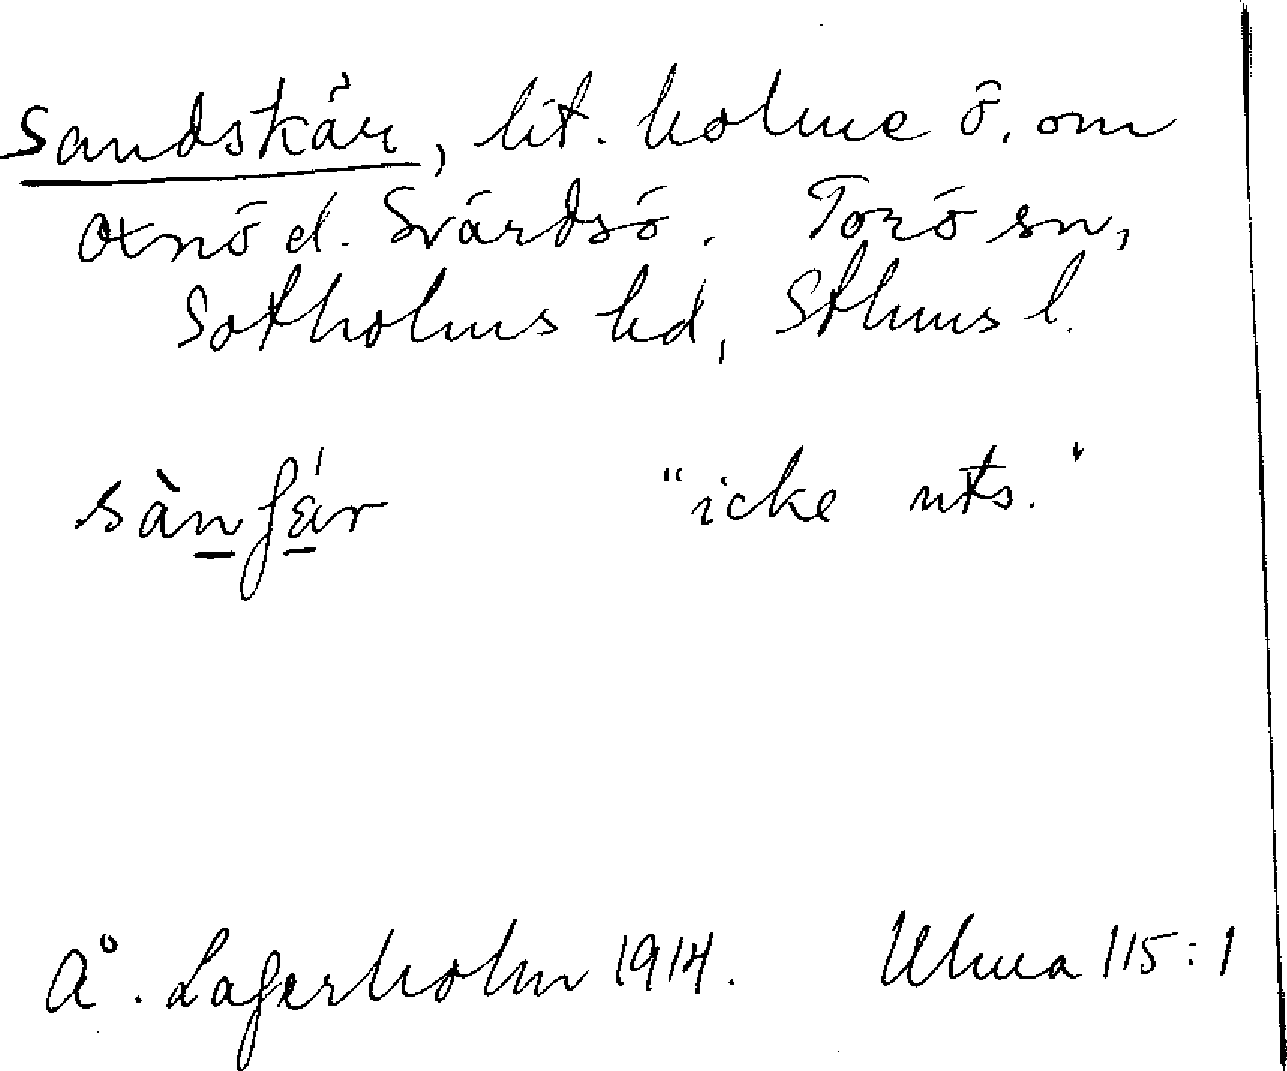 Sandskär, lit. holme ö. om
Oxnö d. Svärdsö. Torö sn,
Sotholms hd, Sthms l.
sànʃä́r "icke uts."
Å. Lagerholm 1914. Ulma 115:1